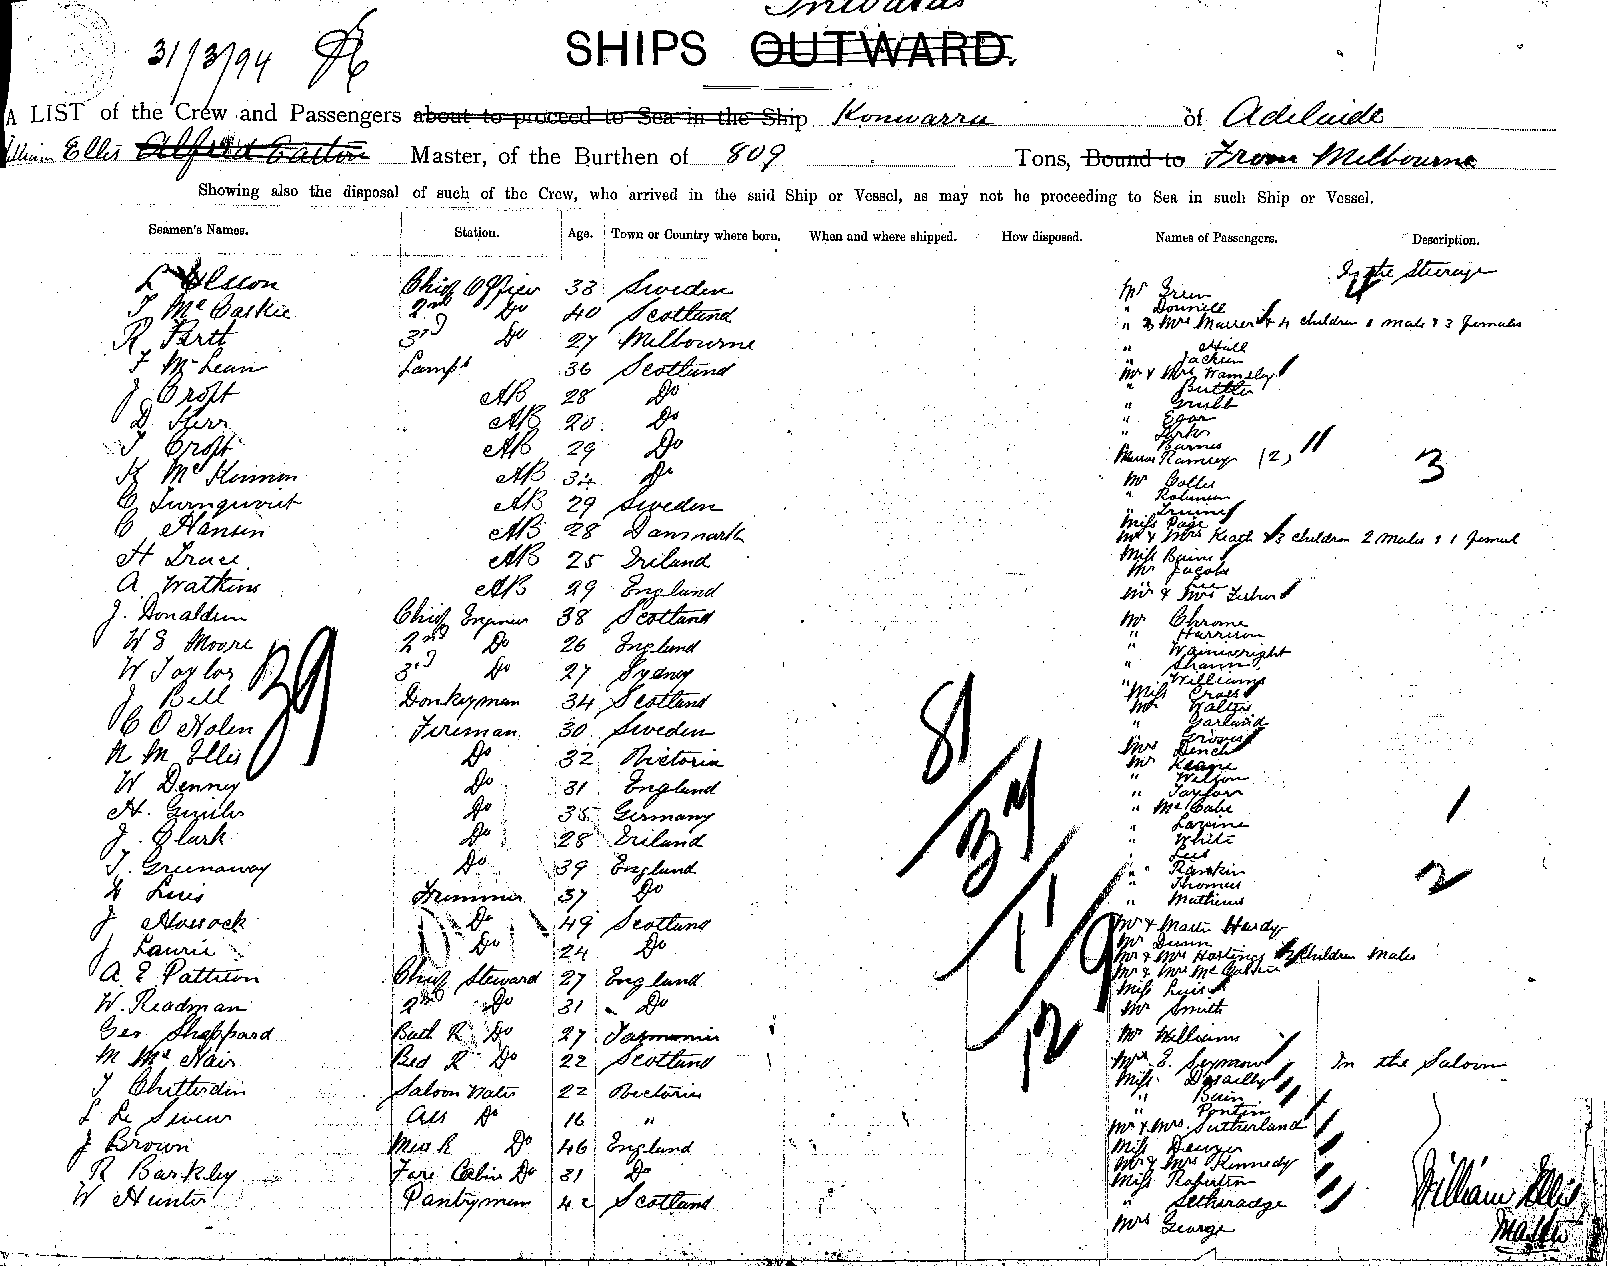 Inwards
31/3/94
SHIPS OUTWARD.
A LIST of the Crew and Passengers about to proceed to Sea in the Ship Konwarra of Adelaide
William Ellis Master, of the Burthen of 809 Tons, Bound to From Melbourne
Showing also the disposal of such of the Crew, who arrived in the said Ship or Vessel, as may not be proceeding to Sea in such Ship or Vessel.
Seamen's Names. Station. Age. Town or Country where born. When and where shipped. How disposed. Names of Passengers. Description.
L Olsson Chief Officer 33 Sweden
T McCaskie 2nd Do 40 Scotland
R Brett 3rd Do 27 Melbourne
F McLean Lamps 36 Scotland
J Croft AB 28 Do
D Kerr AB 20 Do
T Croft AB 29 Do
K McKinnon AB 34 Do
C Turnquvist AB 29 Sweden
C Hansin AB 28 Danmark
H Truce AB 25 Ireland
A. Watkins AB 29 England
J. Donaldson Chief Engineer 38 Scotland
W E Moore 2nd Do 26 England
W Taylor 3rd Do 27 Sydney
J Bell Donkeyman 34 Scotland
C O Nolen Fireman 30 Sweden
N M Ellis Do 32 Victoria
W Denney Do 31 England
H. Do 35 Germany
J. Clark Do 28 Ireland
T. Greenaway Do 39 England
Luis Trimmer 37 Do
J Do 49 Scotland
J Laurie Do 24 Do
A E Pattison Chief Steward 27 England
W. Readman 2nd Do 31 Do
Geo Sheppard Bath R Do 27 Tasmania
M McNair Bed R Do 22 Scotland
T Chitterdin Saloon Waiter 22 Victoria
L Le Sueur Ass Do 16 "
J Brown Mess R Do 46 England
R Barkley Fore Cabin Do 31 Do
W Hunter Pantryman 42 Scotland
39
81
37
11
129
In the Steerage
Mr Green
" Donnill
4 children 1 male & 3 females
" Hill
" Jackson
Mr & Mrs Wamsley
" Buttler
" Grubb
" Egan
" Kirk
" Barnes
Ramsey (2)
3
Mr Collis
" Robinson
" Irvine
Miss Page
Mr & Mrs Keath & 3 children 2 males & 1 female
Miss Bains
Mr Jacobs
" Lee
Mr & Mrs Fisher
Mr Chrome
" Harrison
" Wainwright
" Shann
" Williams
Miss Cross
Mr Walters
" Garland
" Groves
Mrs Dench
Mr Keane
" Wilson
" Taylor
" McCabe
1
" Levine
" White
" Lees
" Rankin
2
" Thomas
" Mathews
Mr & Master Hardy
Mr Dunn
Mr & Mrs Hastings 2 children Males
Mr & Mrs
Miss Luis
Mr Smith
Mr Williams
Mrs E. Seymour In the Saloon
Miss Desailly
" Bain
" Pontin
Mr & Mrs Sutherland
Miss Denyer
Mr & Mrs Kennedy
Miss Roberton
" Setheradge
Mrs George
William Ellis
Master